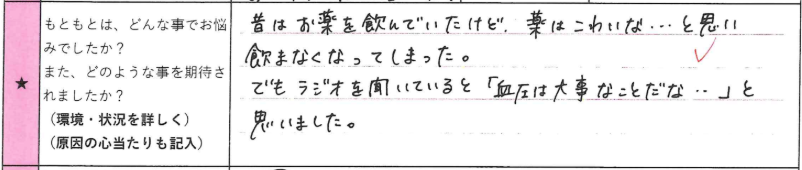 ★
もともとは、どんな事でお悩
みでしたか?
また、どのような事を期待さ
れましたか?
(環境・状況を詳しく)
(原因の心当たりも記入)
昔はお薬を飲んでいたけど、薬はこわいな…と思い
飲まなくなってしまった。
でもラジオを聞いていると「血圧は大事なことだな‥」と
思いました。